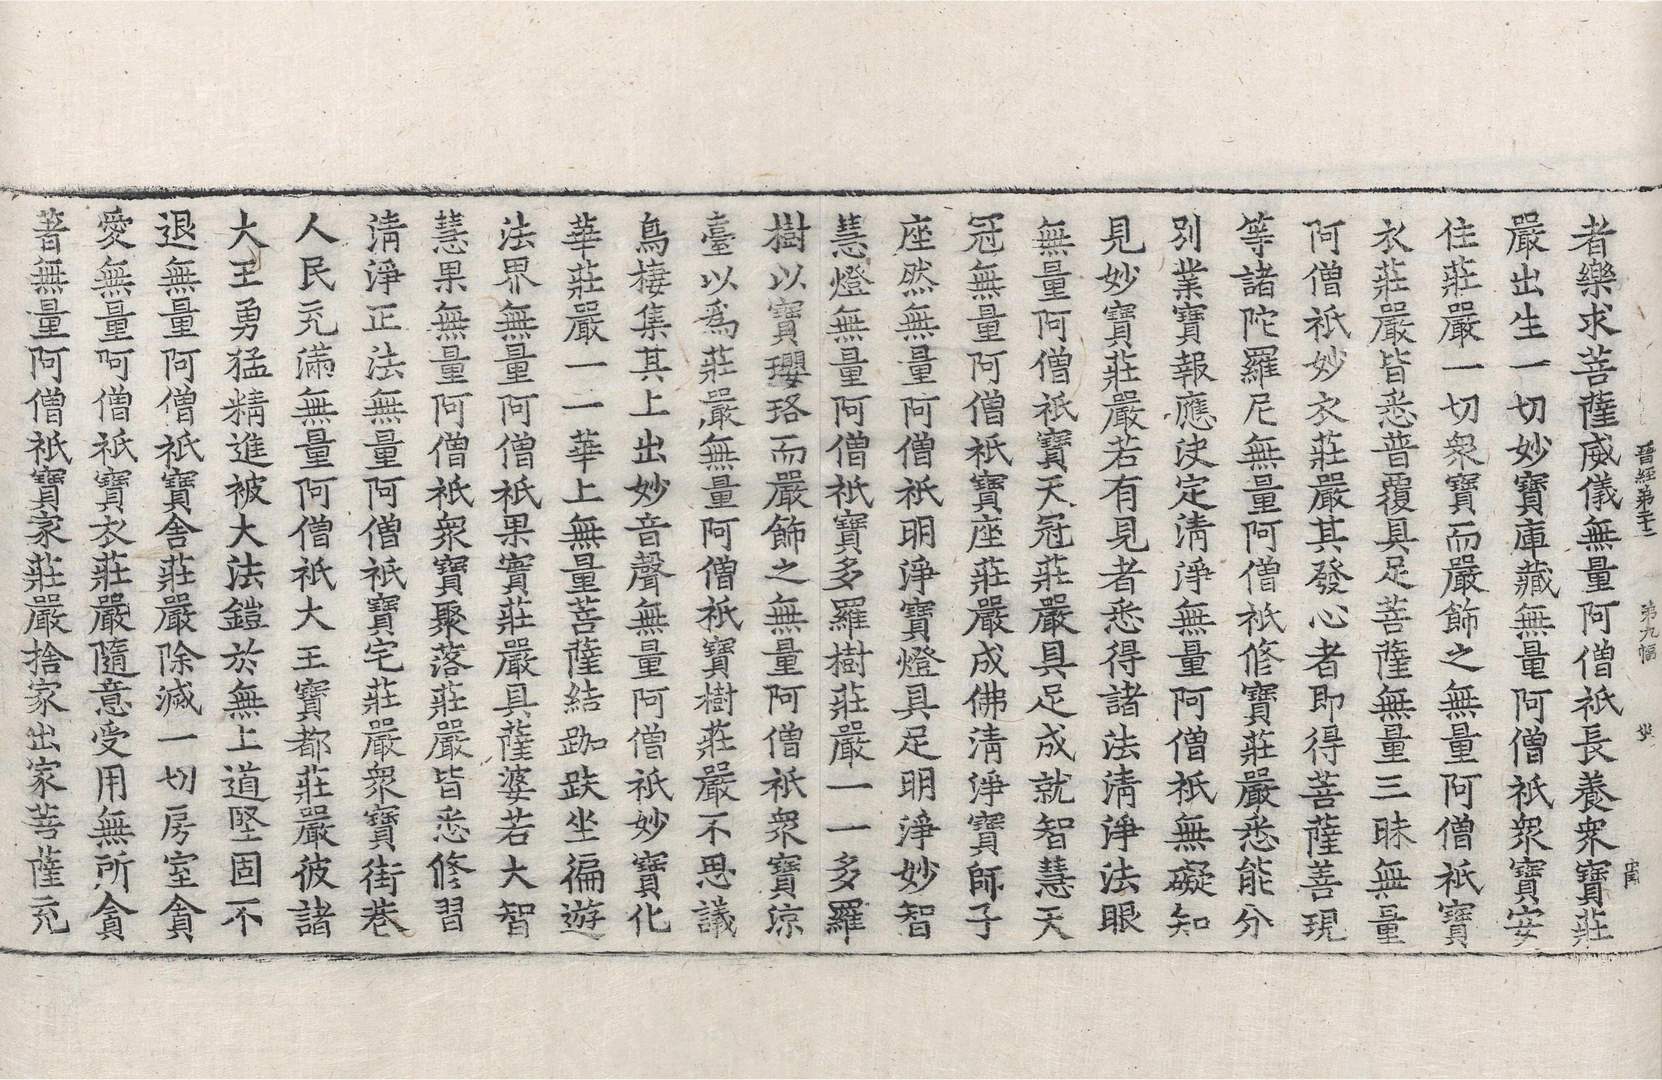 晉經第二十二 第九幅 拱
者樂求菩薩威儀無量阿僧祇長養衆寶莊
嚴出生一切妙寶庫藏無量阿僧祇衆寶安
住莊嚴一切衆寶而嚴飾之無量阿僧祇寶
衣莊嚴皆悉普覆具足菩薩無量三昧無量
阿僧祇妙衣莊嚴其發心者即得菩薩善現
等諸陀羅尼無量阿僧祇修寶莊嚴悉能分
別業寶報應決定清淨無量阿僧祇無礙知
見妙寶莊嚴若有見者悉得諸法清淨法眼
無量阿僧祇寶天冠莊嚴具足成就智慧天
冠無量阿僧祇寶座莊嚴成佛清淨寶師子
座然無量阿僧祇明淨寶燈具足明淨妙智
慧燈無量阿僧祇寶多羅樹莊嚴一一多羅
樹以寶瓔珞而嚴飾之無量阿僧祇衆寶涼
臺以爲莊嚴無量阿僧祇寶樹莊嚴不思議
鳥棲集其上出妙音聲無量阿僧祇妙寶化
華莊嚴一一華上無量菩薩結跏趺坐徧遊
法界無量阿僧祇果實莊嚴具薩婆若大智
慧果無量阿僧祇衆寶聚落莊嚴皆悉修習
清淨正法無量阿僧祇寶宅莊嚴衆寶街巷
人民充滿無量阿僧祇大王寶都莊嚴彼諸
大王勇猛精進被大法鎧於無上道堅固不
退無量阿僧祇寶舍莊嚴除滅一切房室貪
愛無量阿僧祇寶衣莊嚴隨意受用無所貪
著無量阿僧祇寶家莊嚴捨家出家菩薩充